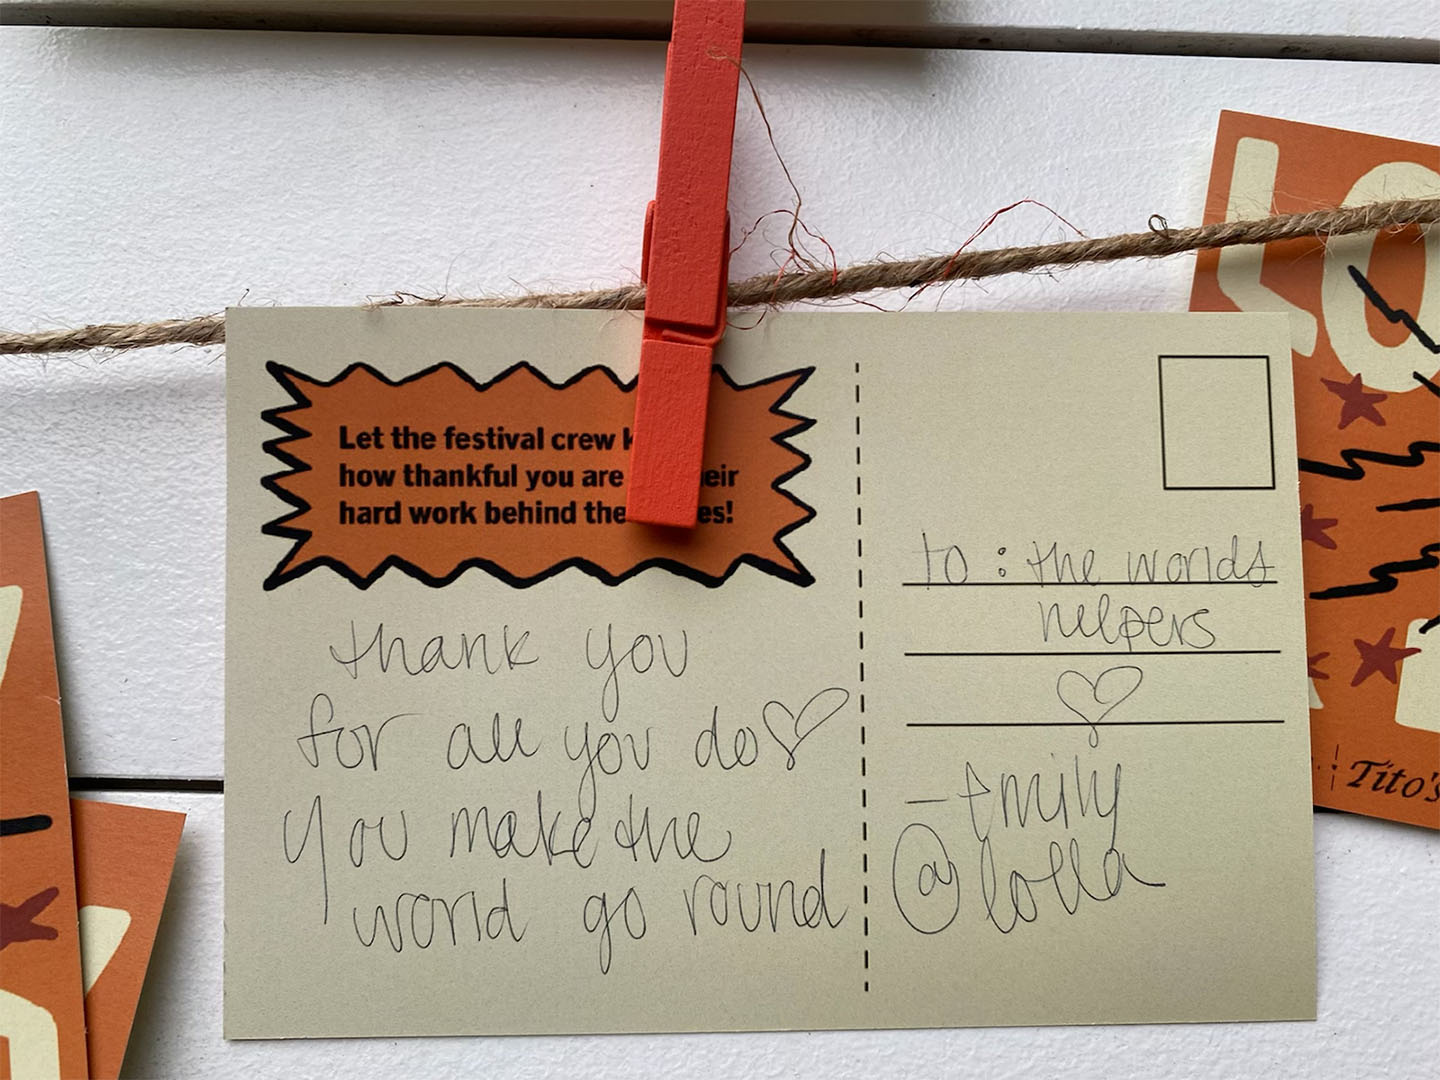 Let the festival crew k
how thankful you are eir
hard work behind the es!
thank you
for all you do♡
you make the
world go round
to: the worlds
helpers
♡
- Emily
@lolla
LO
Tito's